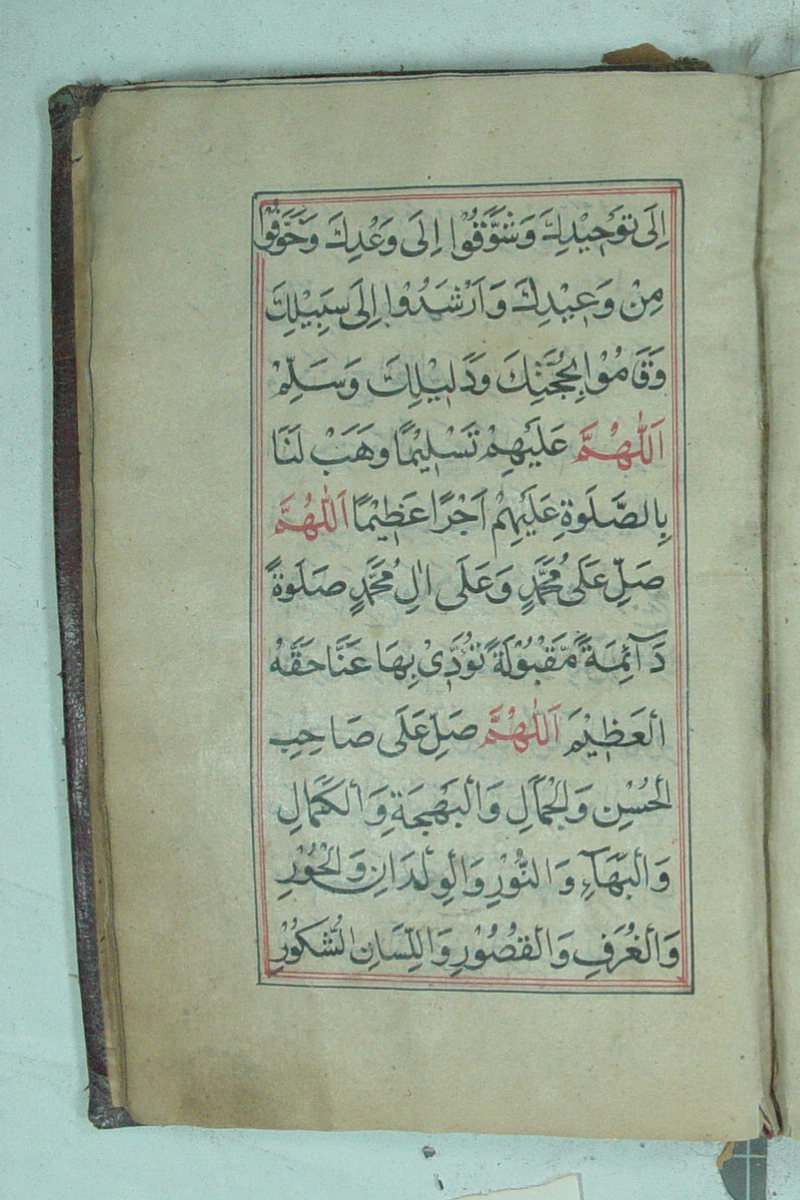 اِلَى تَوْحِيْدِكَ وَشَوَّقُوْا اِلَى وَعْدِكَ وَخَوَّفُوْا
مِنْ وَعِيْدِكَ وَاَرْشَدُوْا اِلَى سَبِيْلِكَ
وَقَامُوْا بِحُجَّتِكَ وَدَلِيْلِكَ وَسَلِّمْ
اَللّٰهُمَّ عَلَيْهِمْ تَسْلِيْمًا وَهَبْ لَنَا
بِالصَّلَوةِ عَلَيْهِمْ اَجْرًا عَظِيْمًا اَللّٰهُمَّ
صَلِّ عَلَى مُحَمَّدٍ وَعَلَى اٰلِ مُحَمَّدٍ صَلَوةً
دَآئِمَةً مَّقْبُوْلَةً تُؤَدِّىْ بِهَا عَنَّا حَقَّهُ
الْعَظِيْمَ اَللّٰهُمَّ صَلِّ عَلَى صَاحِبِ
الْحُسْنِ وَالْجَمَالِ وَالْبَهْجَةِ وَالْكَمَالِ
وَالْبَهَآءِ وَالنُّوْرِ وَالْوِلْدَانِ وَالْحُوْرِ
وَالْغُرَفِ وَالْقُصُوْرِ وَاللِّسَانِ الشَّكُوْرِ